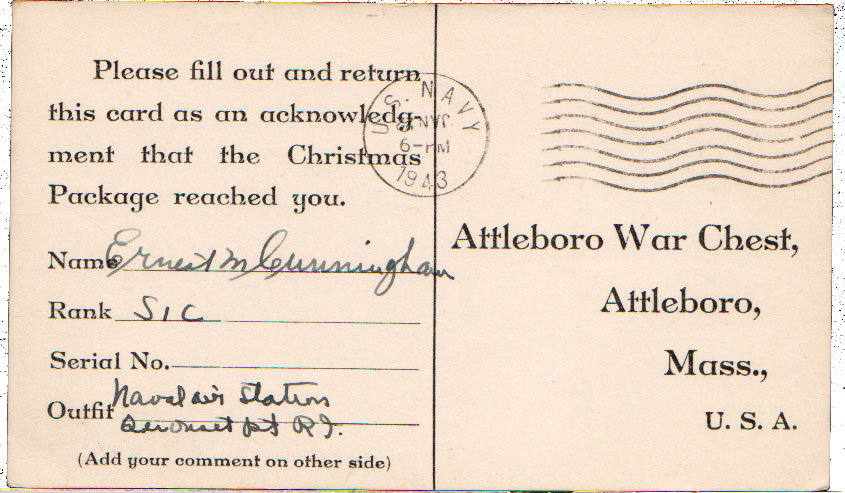 Please fill out and return
this card as an acknowledg-
ment that the Christmas
Package reached you.
Name Ernest M Cunningham
Rank S1C
Serial No.
Outfit Naval air Station
Quonset pt R.I.
(Add your comment on other side)
U.S. NAVY
6-PM
1943
Attleboro War Chest,
Attleboro,
Mass.,
U. S. A.